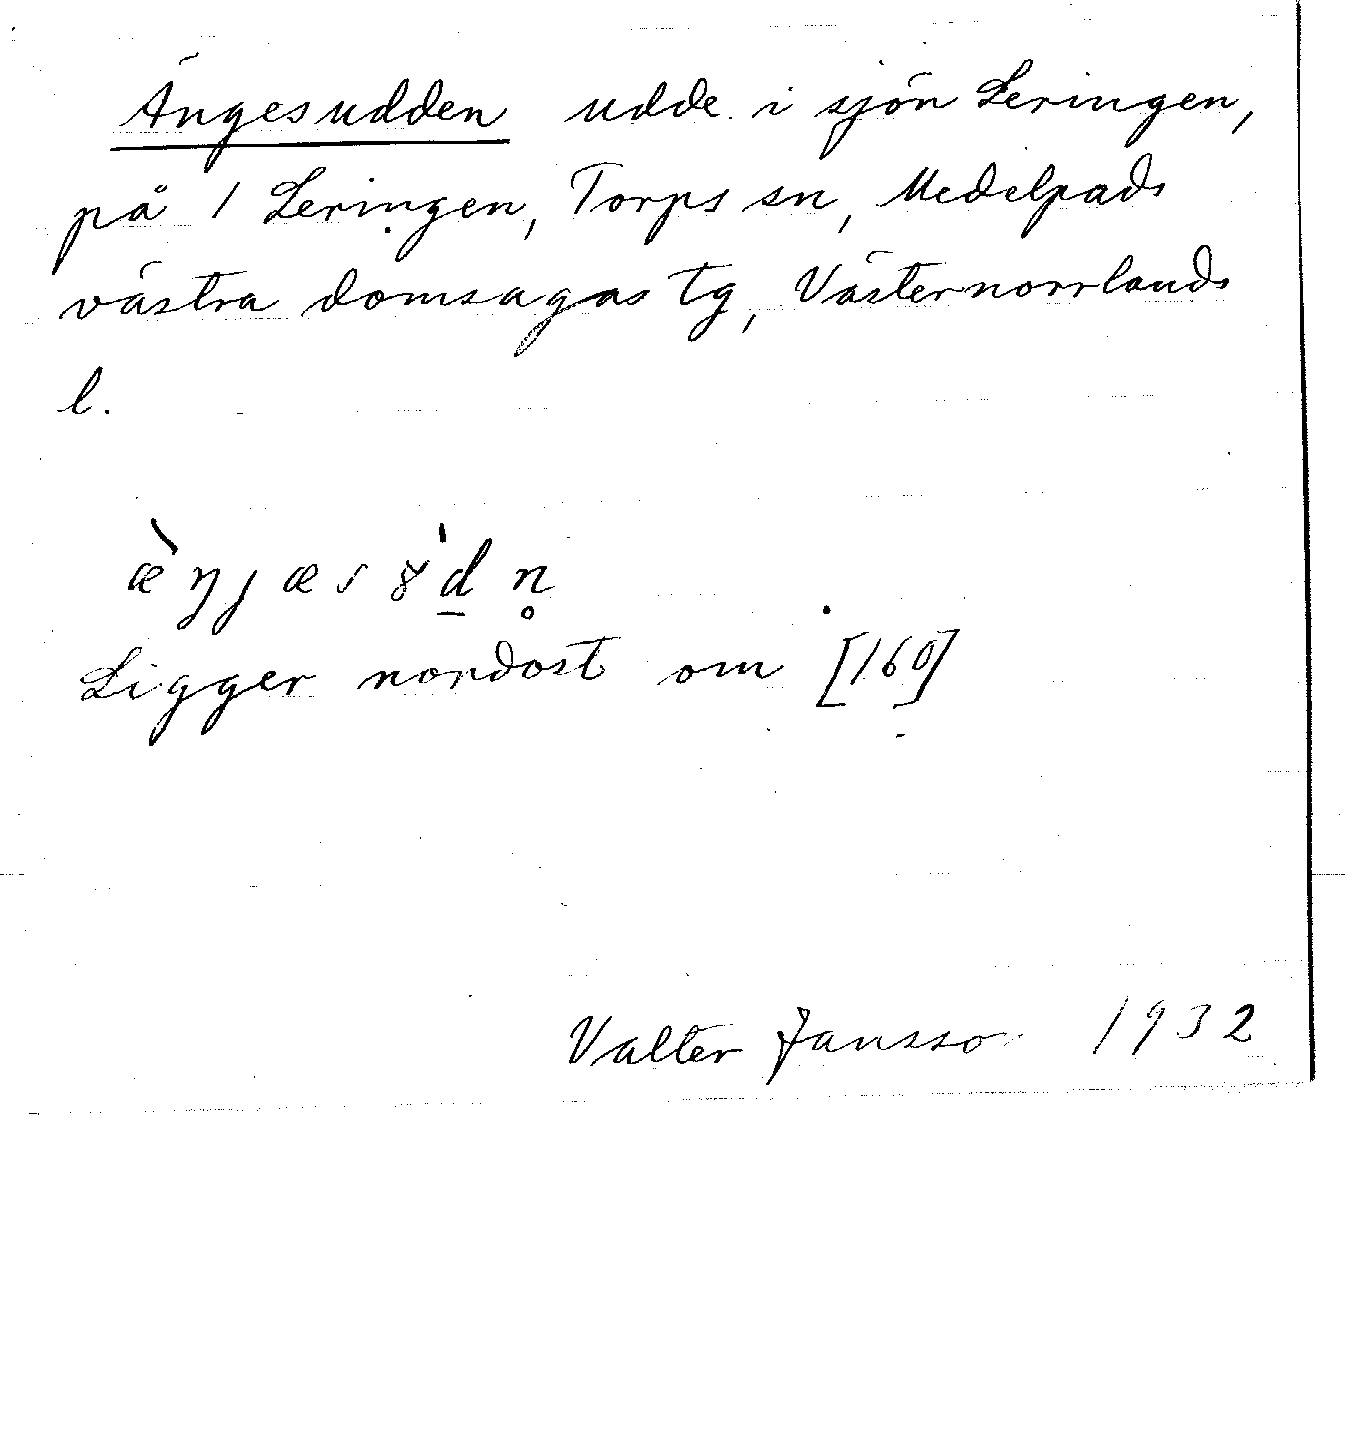 Ängesudden udde i sjön Leringen,
på 1 Leringen, Torps sn, Medelpads
västra domsagas tg, Västernorrlands
l.
Ligger nordost om [160]
Valter Jansson 1932